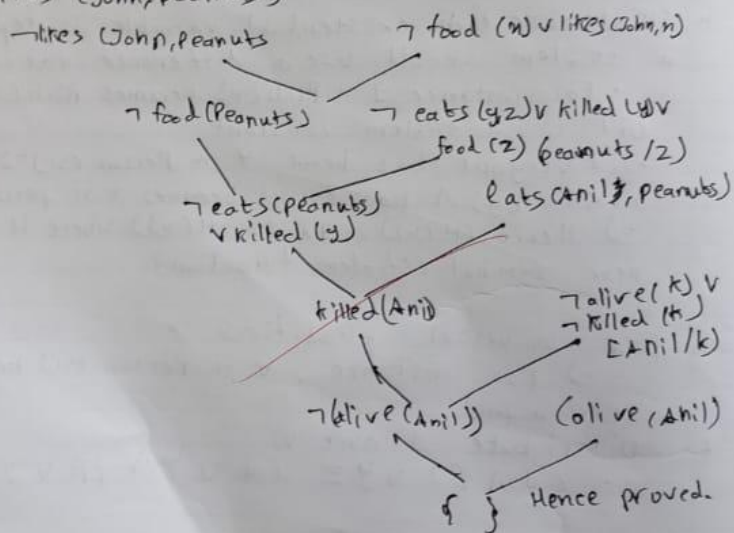 ¬likes (John, Peanuts
¬ food (x) v likes (John, x)
¬ food (Peanuts)
¬ eats (y z) v killed (y) v
food (z) (peanuts / z)
¬ eats (peanuts)
v killed (y)
eats (Anil, peanuts)
killed (Anil)
¬ alive (k) v
¬ killed (k)
[Anil/k)
¬(alive (Anil))
(alive (Anil)
{ } Hence proved.